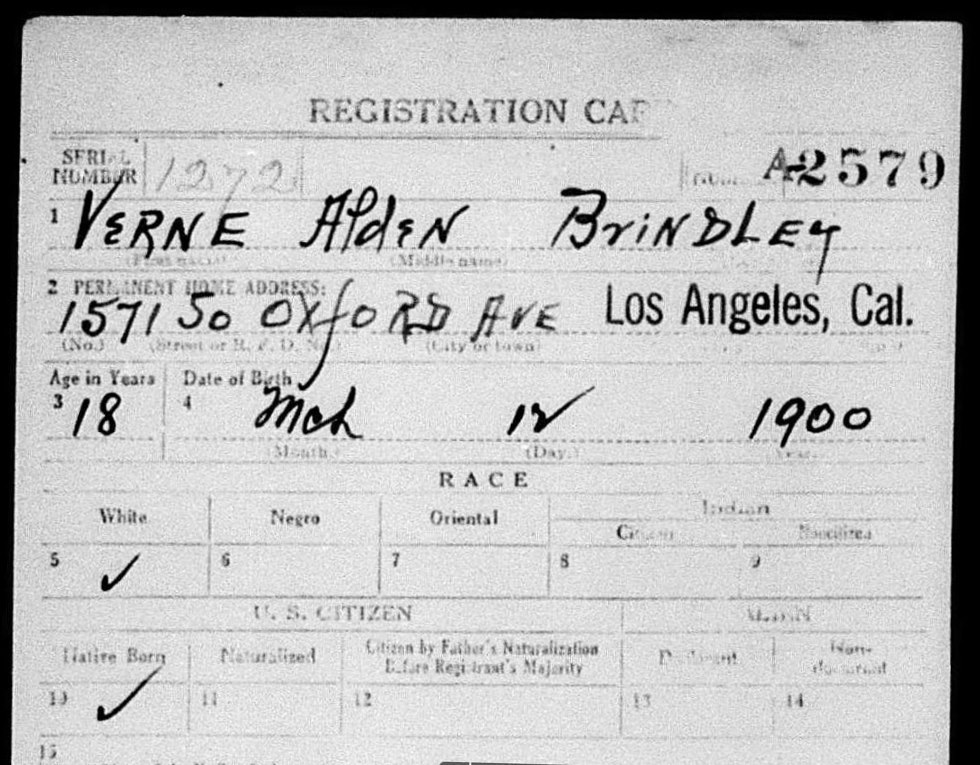 REGISTRATION CAR
SERIAL NUMBER 1272 A2579
1 VERNE Alden BRINDLEY
(Middle name)
2 PERMANENT HOME ADDRESS:
1571 So OXfORD AVE Los Angeles, Cal.
(No.) (Street or R. F. D. No.) (City or town)
Age in Years Date of Birth
3 18 4 Mch 12 1900
(Month.) (Day.) (Year.)
RACE
White Negro Oriental Indian
Citizen Noncitizen
5 ✓ 6 7 8 9
U. S. CITIZEN ALIEN
Native Born Naturalized Citizen by Father's Naturalization Before Registrant's Majority Declarant Non-declarant
10 ✓ 11 12 13 14
15